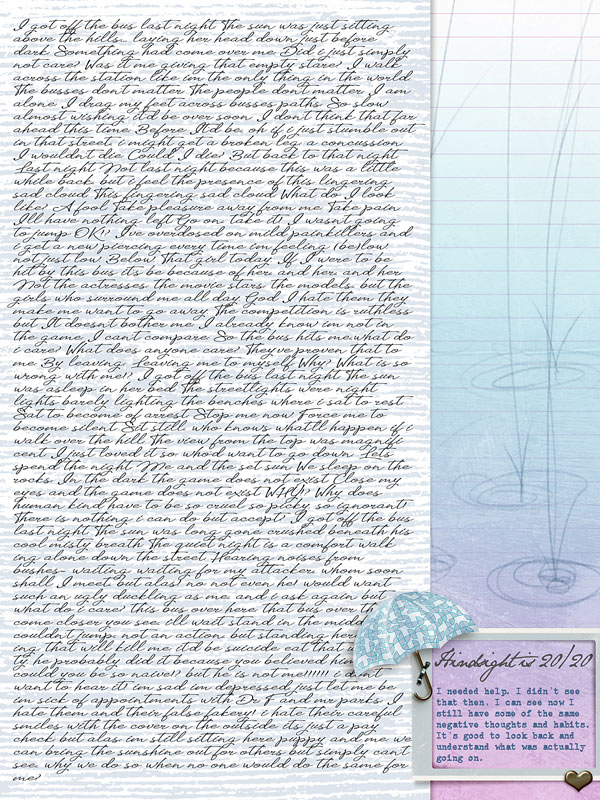 I got off the bus last night The sun was just sitting
above the hills... laying her head down just before
dark Something had come over me Did i just simply
not care? Was it me giving that empty stare? I walk
across the station like im the only thing in the world
The busses don't matter The people don't matter I am
alone I drag my feet across busses paths So slow
almost wishing it'd be over soon I don't think that far
ahead this time Before It'd be, oh if i just stumble out
in that street, i might get a broken leg, a concussion
I wouldn't die Could I die? But back to that night
Last night Not last night because this was a little
while back but i feel the presence of this lingering
sad cloud This lingering sad cloud What do I look
like? A fool Take pleasure away from me Take pain
I'll have nothing left Go on, take it! I wasn't going
to jump OK!? I've overdosed on mild painkillers and
i get a new piercing every time im feeling (be)low
not just low Below That girl today If I were to be
hit by this bus its be because of her, and her, and her
Not the actresses, the movie stars, the models, but the
girls who surround me all day God, I hate them they
make me want to go away The competition is ruthless
but It doesn't bother me I already know im not in
the game I can't compare So the bus hits me what do
i care? What does anyone care? They've proven that to
me By leaving Leaving me to myself Why? What is so
wrong with me? I got off the bus last night The sun
was asleep in her bed The streetlights were night
lights barely lighting the benches where i sat to rest
Sat to become of arrest Stop me now Force me to
become silent Sit still who knows what'll happen if i
walk over the hill The view from the top was magnifi
cent I just loved it so who'd want to go down Lets
spend the night Me and the set sun We sleep on the
rocks In the dark the game does not exist Close my
eyes and the game does not exist WHY!? Why does
human kind have to be so cruel so picky so ignorant?
There is nothing i can do but accept? I got off the bus
last night The sun was long gone crushed beneath his
cool misty breath The quiet night is a comfort walk
ing alone down the street Hearing noises from
bushes- waiting waiting for my attacker whom soon
shall I meet but alas! no not even he! would want
such an ugly duckling as me and i ask again but
what do i care? this bus over here that bus over th
come closer you see i'll wait stand in the midd
couldn't jump, not an action, but standing her
ing that will kill me it'd be suicide eat that
ty he probably did it because you believed him
could you be so naive!? but he is not me!!!!!! i don't
want to hear it! im sad im depressed just let me be
im sick of appointments with Dr F and mr parks I
hate them and their false fakery i hate their careful
smiles with the cover on the outside its just a pay
check but alas im still sitting here peppy and me we
can bring the sunshine out for others but simply can't
see why we do so when no one would do the same for
me?
Hindsight is 20/20
I needed help. I didn't see
that then. I can see now I
still have some of the same
negative thoughts and habits.
It's good to look back and
understand what was actually
going on.